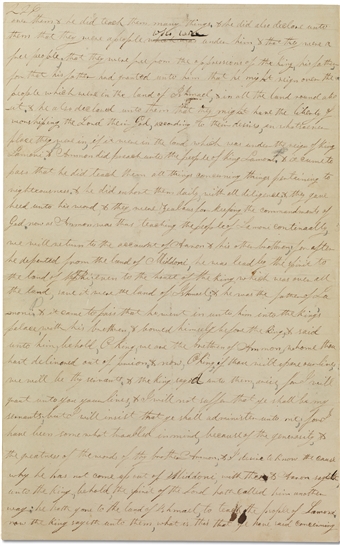 over them & he did teach them many things & he did also declare unto
them that they were a people who were under him & that they were a
free people that they were free from the oppressions of the king his father
for that his father had granted unto him that he might reign over the
people which were in the land of Ishmael & in all the land round about
& he also declared unto them that they might have the liberty of
worshiping the Lord their God according to their desires in whatsoever
place they were in if it were in the land which was under the reign of king
Lamoni & Ammon did preach unto the people of king Lamoni & it came to
pass that he did teach them all things concerning things pertaining to
righteousness & he did exhort them daily with all diligence & they gave
heed unto his word & they were zealous for keeping the commandments of
God now as Ammon was thus teaching the people of Lamoni continually
we will return to the account of Aaron & his other brethren for after
he departed from the land of Middoni he was lead by the spirit to
the land of Nephi even to the house of the king which was over all
the land save it were the land of Ishmael & he was the father of La
moni & it came to pass that he went in unto him into the kings
palace with his brethren & bowed himself before the king & said
unto him behold O king we are the brethren of Ammon whom thou
hast delivered out of prison & now O king if thou wilt spare our lives
we will be thy servants & the king said unto them arise for I will
grant unto you your lives & I will not suffer that ye shall be my
servants but I will insist that ye shall administer unto me for I
have been some what troubled in mind because of the generosity &
the greatness of the words of thy brother Ammon & I desire to know the cause
why he has not come up out of Middoni with thee & Aaron said
unto the king behold the spirit of the Lord hath called him another
way he hath gone to the land of Ishmael to teach the people of Lamoni
now the king sayeth unto them what is this that ye have said concerning